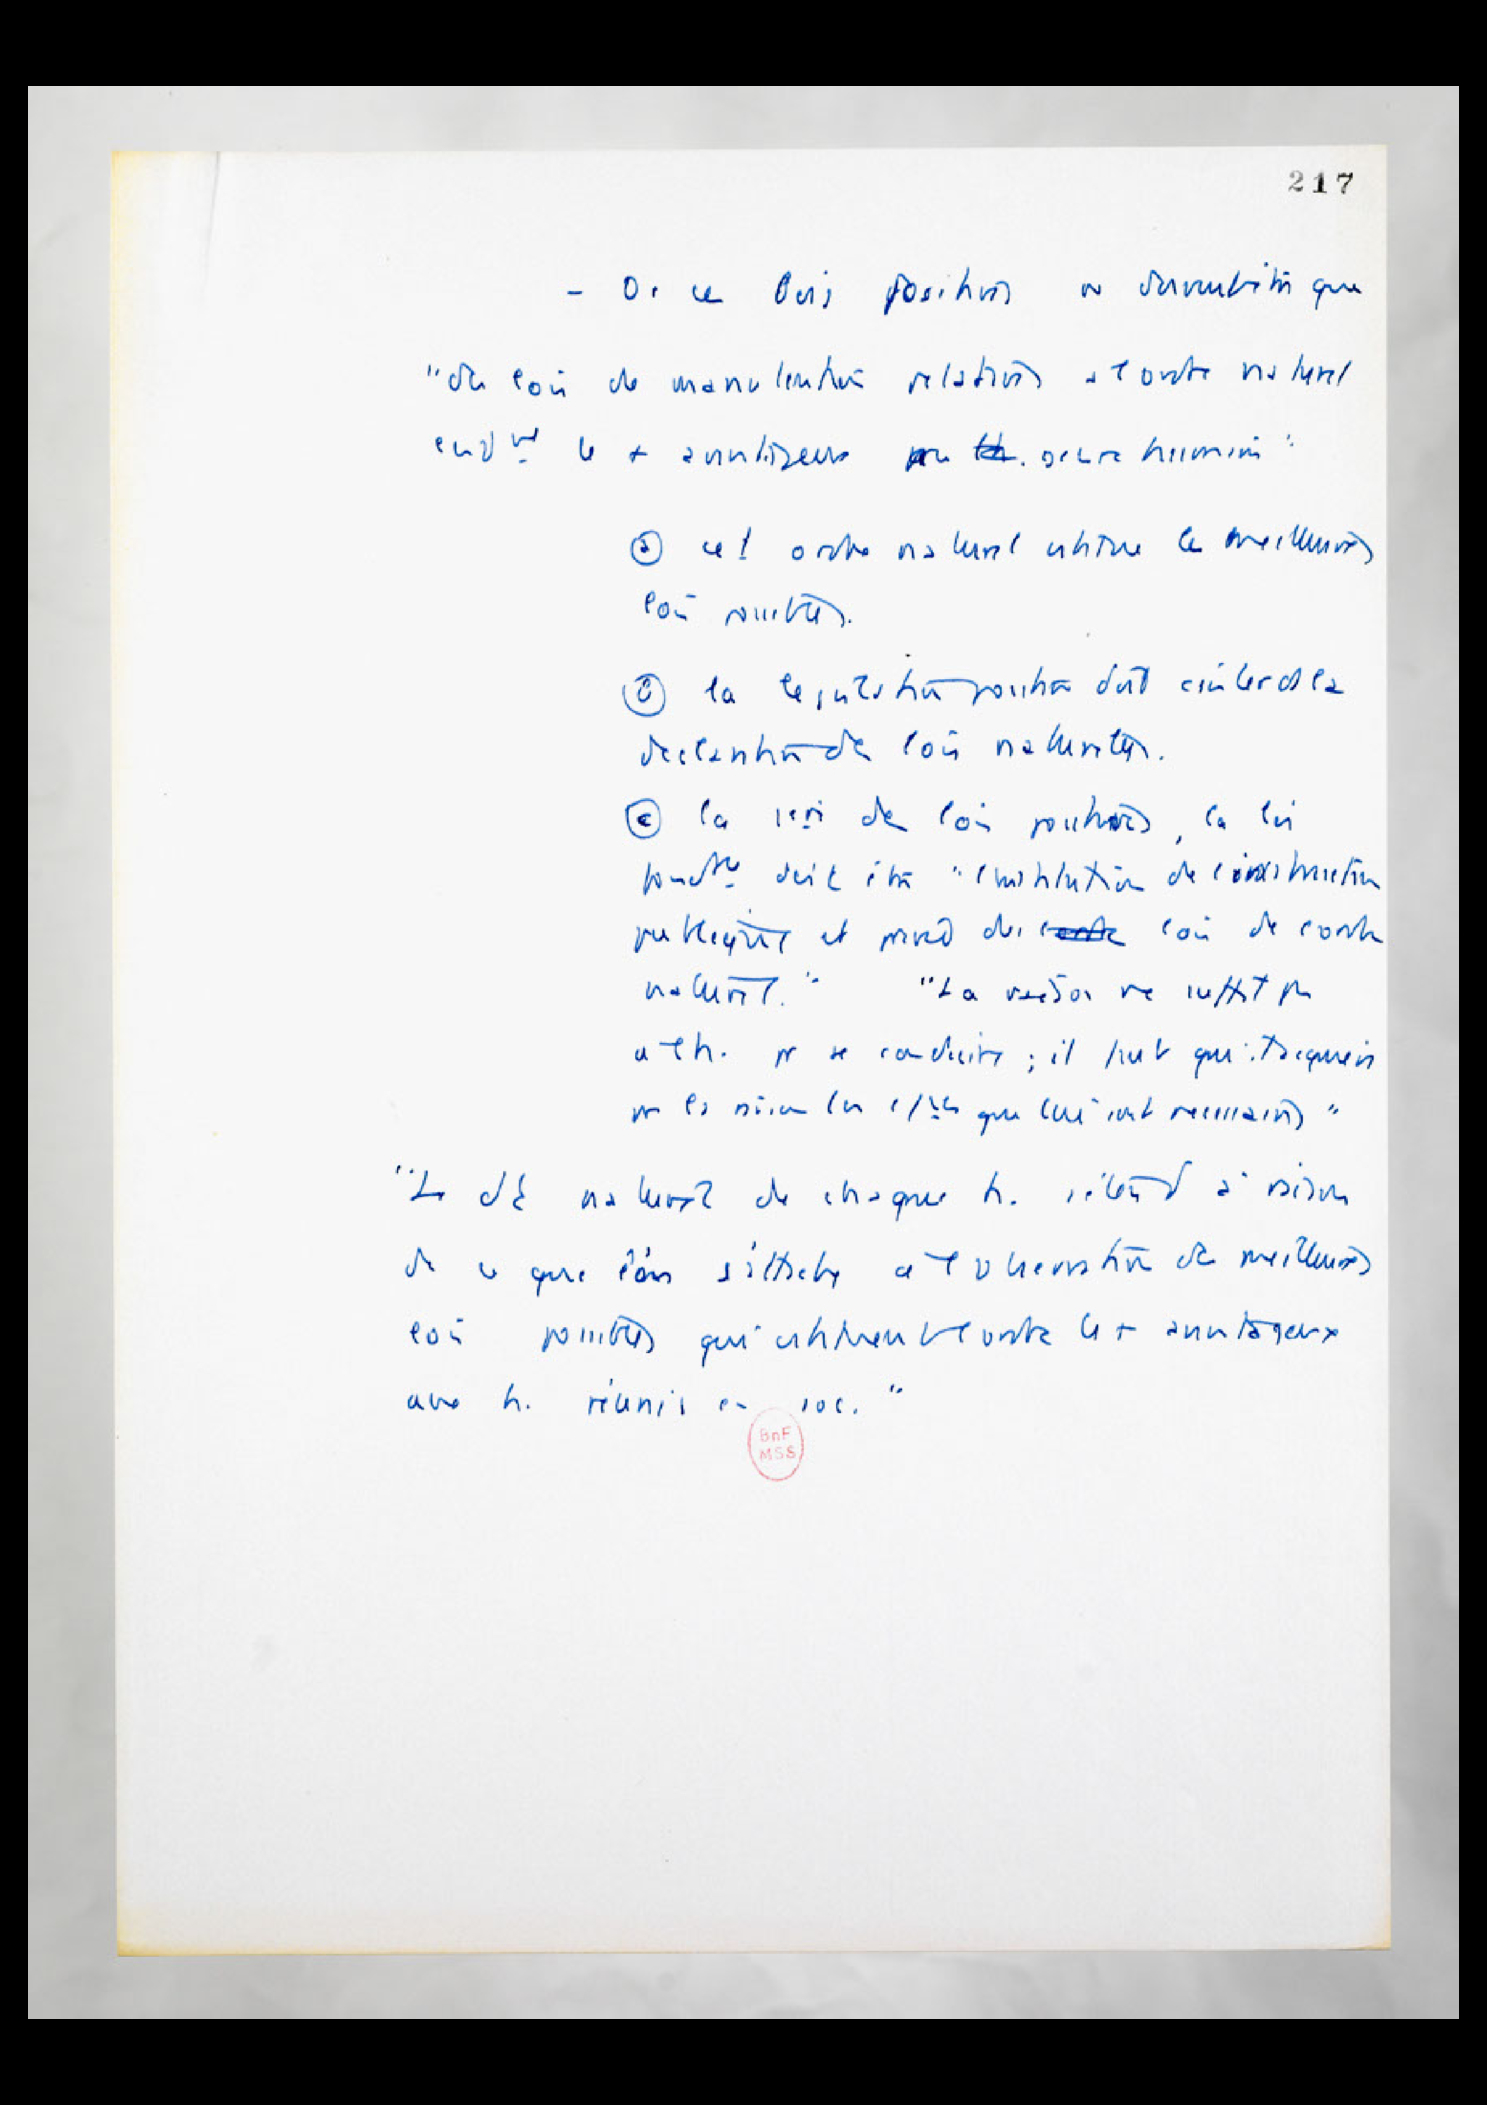 217
- Or ces lois positives ne devraient être que
"des lois de manutention relatives à l'ordre naturel
le + avantageux au genre humain"
(a) cet ordre naturel constitue les meilleures
lois positives.
(b) la législation positive doit consister ds la
déclaration des lois naturelles.
(c) la 1ère des lois positives, la loi
fondtale doit être "l'institution de l'instruction
publique et privée des lois de l'ordre
naturel." "La raison ne suffit pas
à l'h. pr se conduire ; il faut qu'il acquière
par les que lui sont nécessaires"
"Le dt naturel de chaque h. s'étend à raison
de ce que l'on s'attache à l'observation des meilleures
lois possibles qui constituent l'ordre le + avantageux
aux h. réunis en soc."
BnF
MSS